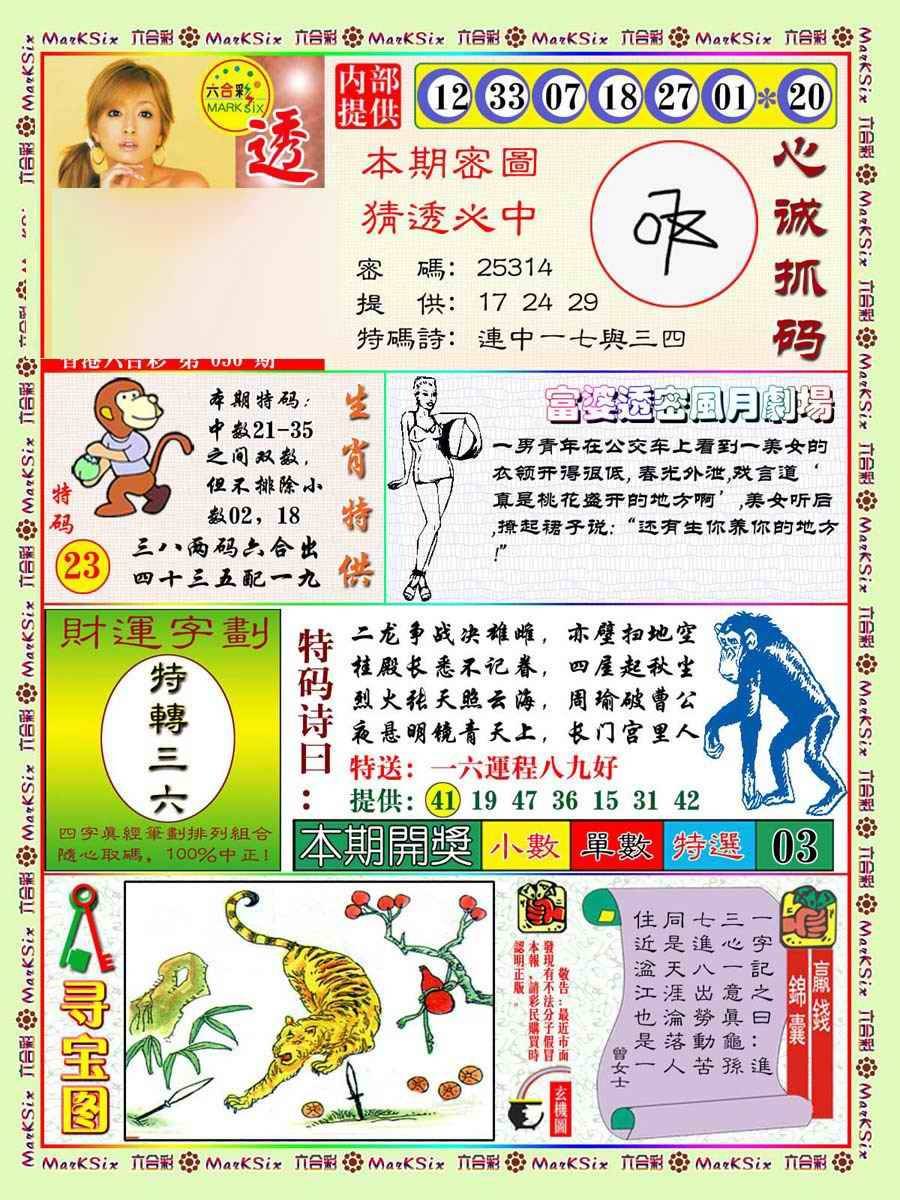 MarKSix 六合彩 MarKSix 六合彩 MarKSix 六合彩 MarKSix 六合彩 MarKSix 六合彩
六合彩
MARK SIX
透
内部
提供
12 33 07 18 27 01 * 20
本期密圖
猜透必中
密 碼: 25314
提 供: 17 24 29
特碼詩: 連中一七與三四
心诚抓码
香港六合彩 第 期
特码
23
本期特码:
中数21-35
之间双数,
但不排除小
数02, 18
三八两码六合出
四十三五配一九
生肖特供
富婆透密風月劇場
一男青年在公交车上看到一美女的
衣领开得很低,春光外泄,戏言道‘
真是桃花盛开的地方啊’,美女听后
,撩起裙子说:“还有生你养你的地方
!”
財運字劃
特轉三六
四字真經筆劃排列組合
隨心取碼, 100%中正!
特码诗曰:
二龙争战决雄雌, 赤壁扫地空
桂殿长悉不记春, 四屋起秋尘
烈火张天照云海, 周瑜破曹公
夜悬明镜青天上, 长门宫里人
特送: 一六運程八九好
提供: 41 19 47 36 15 31 42
本期開獎 小數 單數 特選 03
寻宝图
敬告:最近市面
發現有不法分子假冒
本報,請彩民購買時
認明正版。
玄機圖
一字記之曰:進
三心一意真龜孫
七進八出勞動苦
同是天涯淪落人
住近湓江也是一
曾女士
贏錢
錦囊
MarKSix 六合彩 MarKSix 六合彩 MarKSix 六合彩 MarKSix 六合彩 MarKSix 六合彩